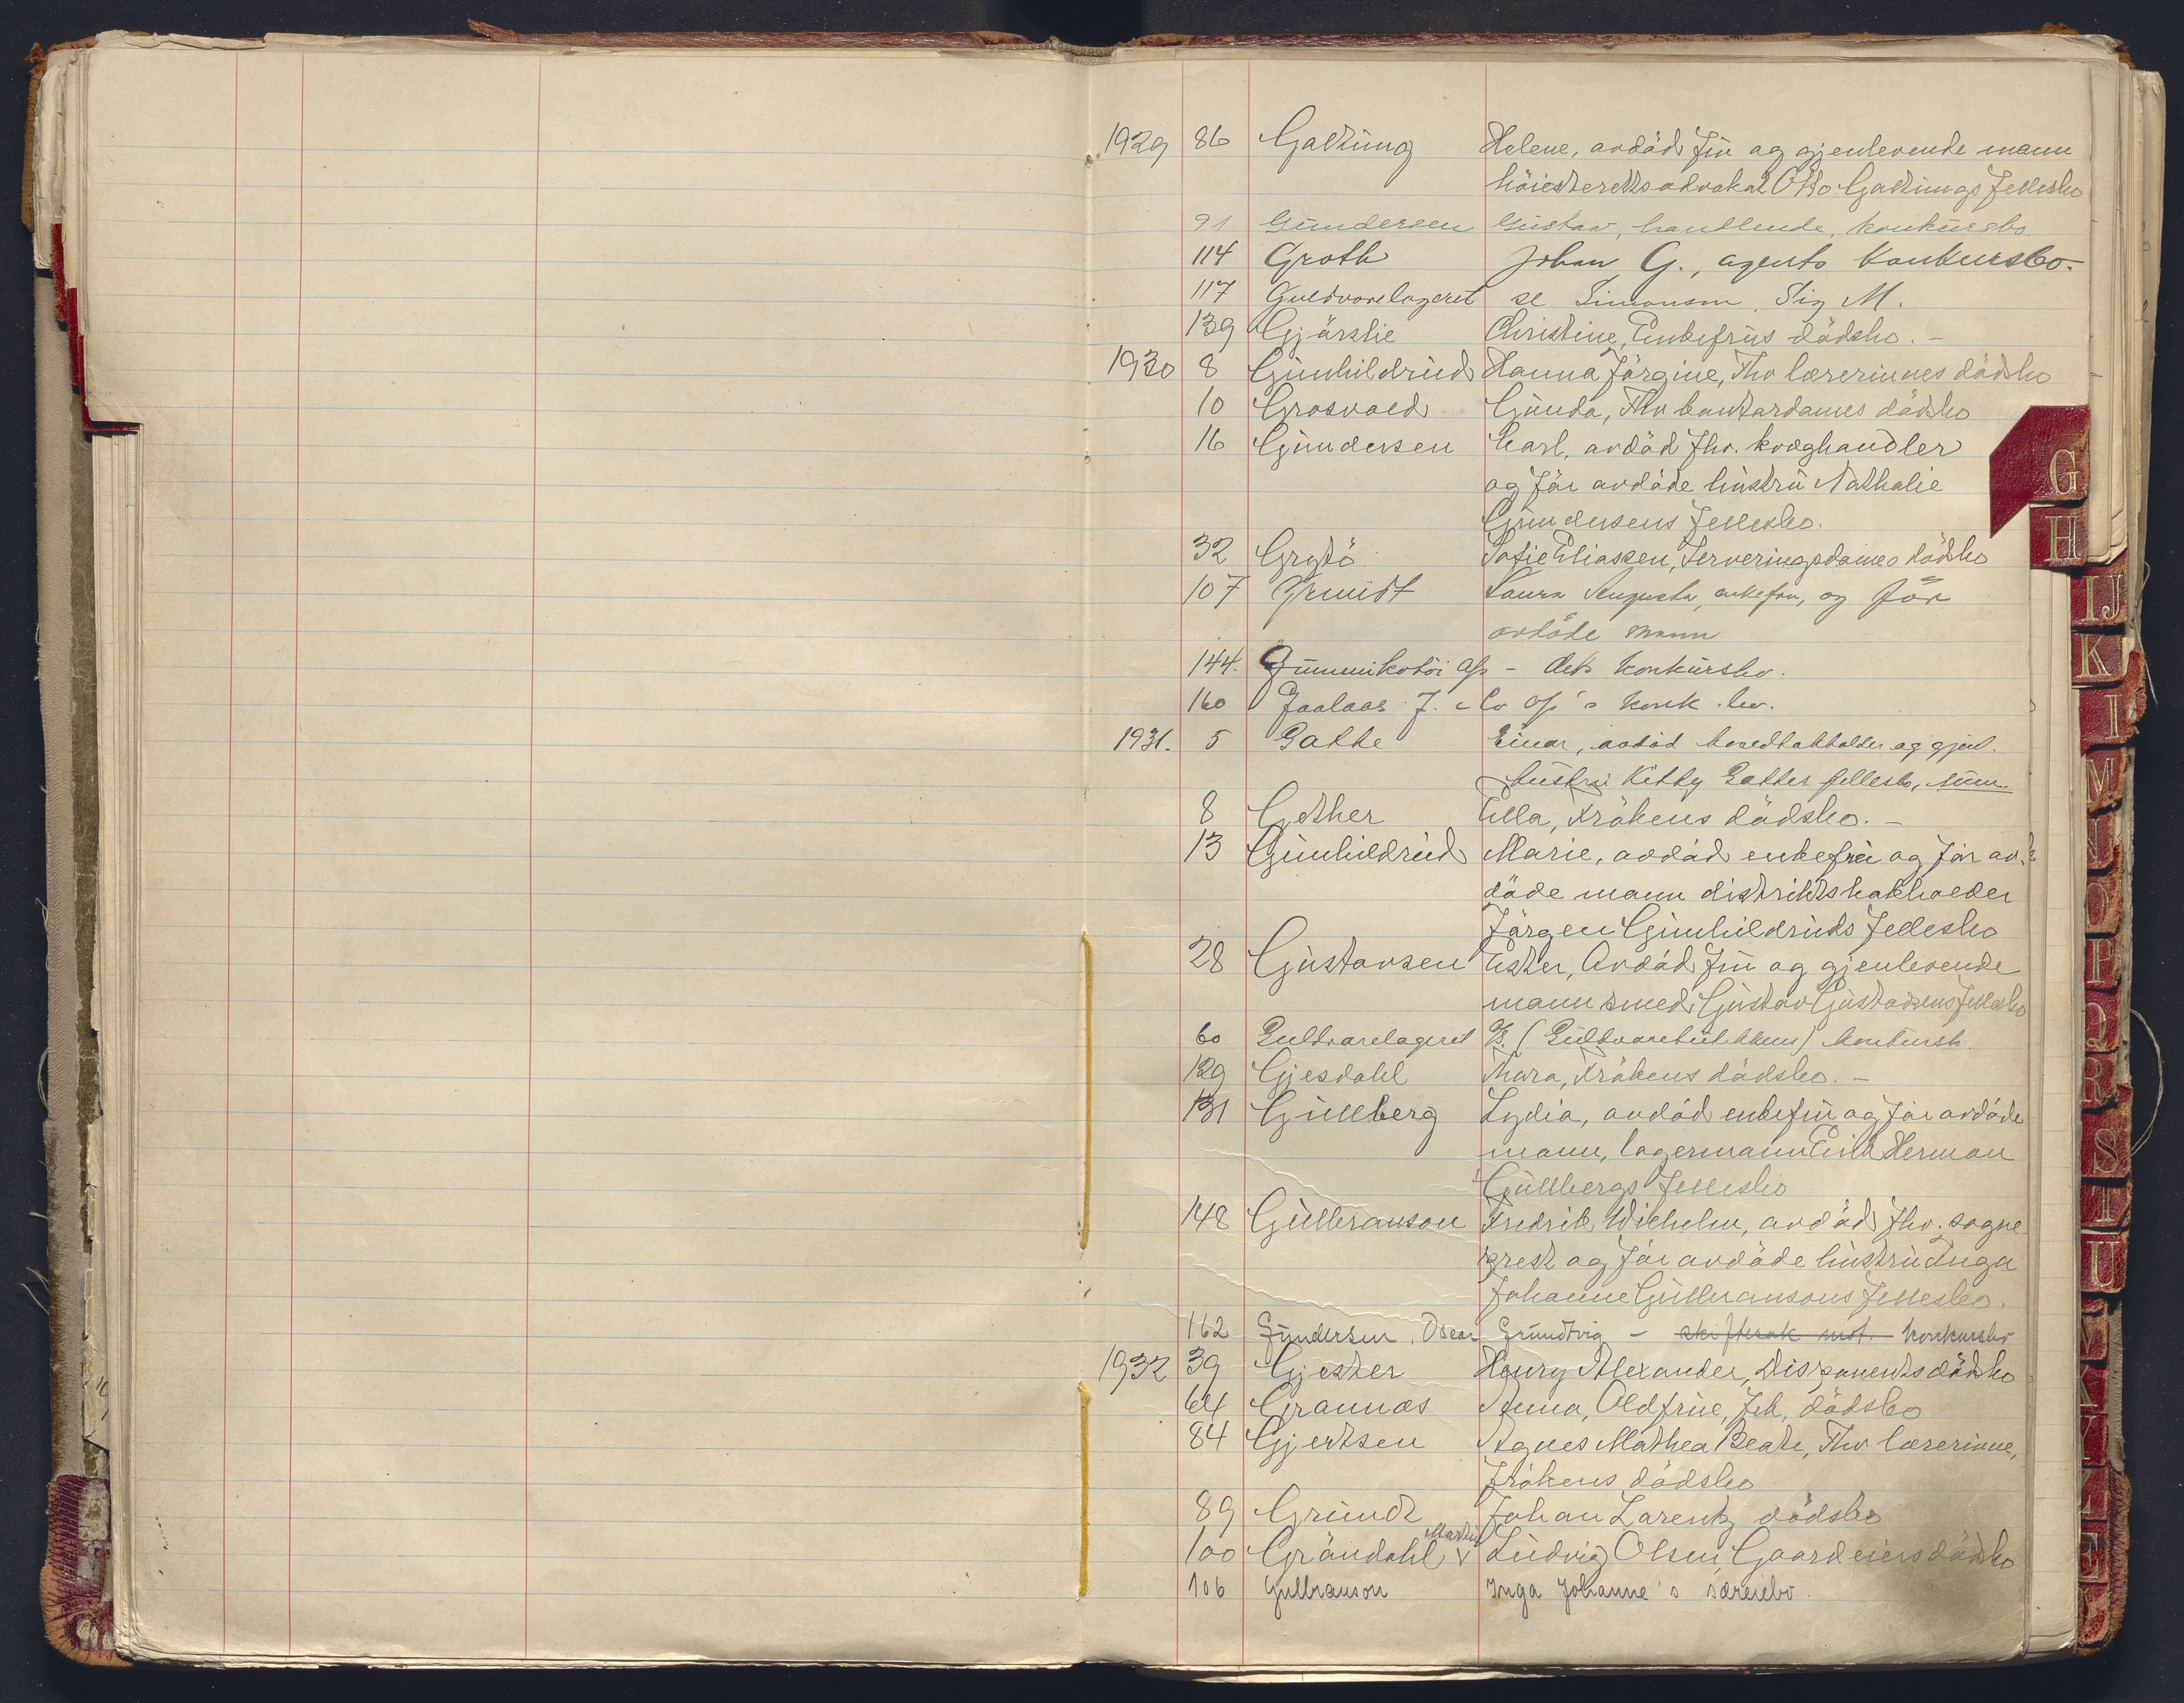 1929 86 Galtung Helene, avdöd frü og gjenlevende mann
höiesterettsadvokat Otto Galtungs fellesbo
91 Gündersen Güstav, handlende, konkürsbo.
114 Groth Johan G., agents konkursbo.
117 Guldvarelageret se Simonsen, Sig M.
139 Gjärslie Christine, Enkefrüs dödsbo. -
1930 8 Günhildrüd Hanna Jörgine, Fhv lærerinnes dödsbo
10 Grosvold Günda, Fhv kontordames dödsbo
16 Gündersen Carl, avdöd fhv. kvæghandler
og för avdöde hüstrü Nathalie
Gündersens fellesbo.
32 Grytö Sofie Eliassen, Serveringsdames dödsbo
107 Laura Augusta, enkefru, og för
avdöde mann
144. Gümmikotöi A/s - dets konkürsbo.
160 Gaalaas J. & Co A/s's konk.bo.
1931. 5 Gatke Einar, avdöd hovedbokholder og gjenl.
hüstrü Kitty Gatkes fellesbo,
8 Gether Ella, Frökens dödsbo. -
13 Günhildrüd Marie, avdöd enkefrü og för av-
döde mann distriktskakholder
Jörgen Günhildrüds fellesbo
28 Güstavsen Ester, Avdöd frü og gjenlevende
mann smed Güstav Güstavsens fellesbo
60 Guldvarelageret A/S. (Güldvarebutikkens) konkursb.
129 Gjesdahl Thora, Frökens dödsbo. -
131 Güllberg Lydia, avdöd enkefrü og för avdöde
mann, lagermann Emil Herman
Güllbergs fellesbo
148 Güllbranson Fredrik Wilhelm, avdöd fhv. sogne
prest og för avdöde hüstrü Inga
Johanne Güllbransons fellesbo.
162 Gündersen, Oscar Gründtvig - konkursbo
1932 39 Gjester Henry Alexander, Disponents dödsbo
64 Grannæs Anna, Oldfrüe, Frk, dödsbo
84 Gjertsen Agnes Mathea Beate, Fhv lærerinne,
Frökens dödsbo
89 Gründt Johan Larentz dödsbo
Martin
100 Gröndahl v Lüdvig Olsen, Gaardeiers dödsbo
106 Gulbranson Inga Johanne's særeiebo.
G
H
IJ
K
M
N
O
P
R
S
T
U